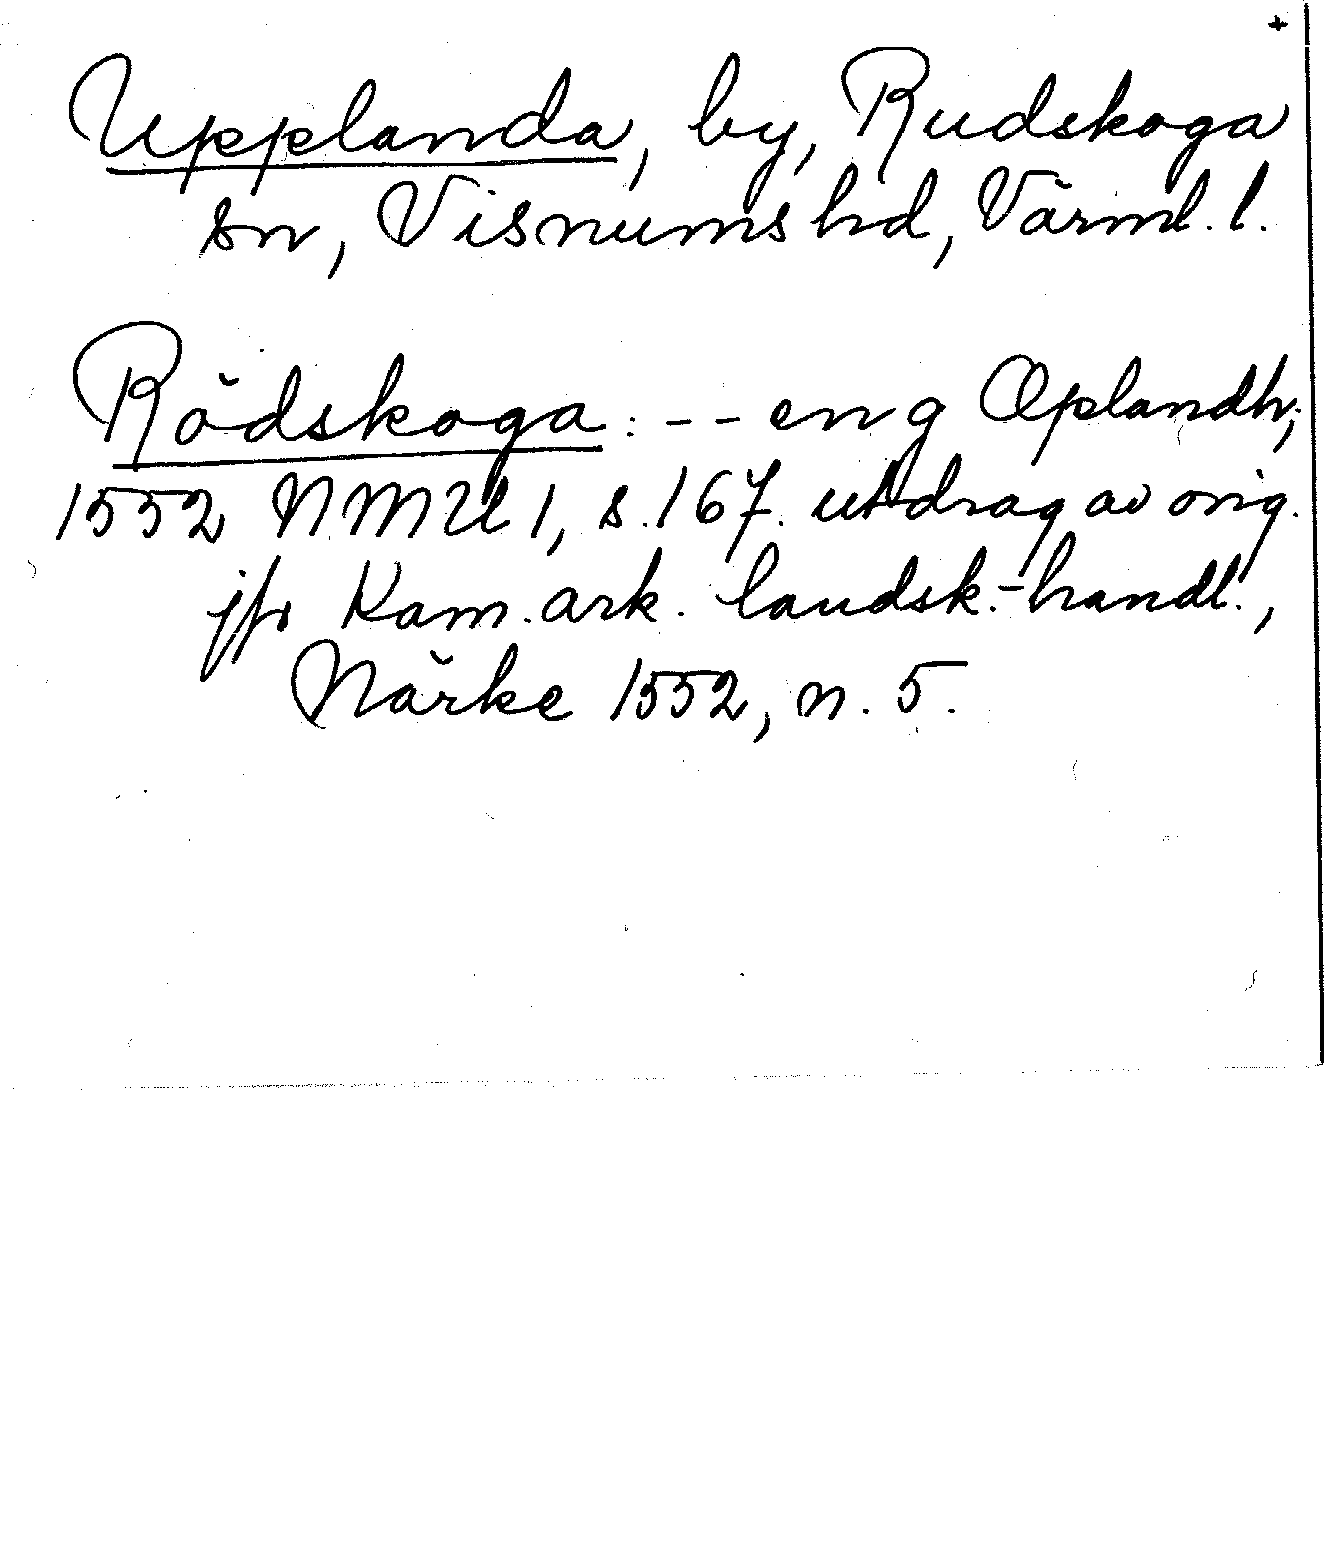 +
Upplanda, by, Rudskoga
sn, Visnums hd, Värml. l.
Rödskoga: -- eng Oplandh;
1552 NMU 1, s. 167. utdrag av orig.
jfr Kam. ark. landsk.-handl.,
Närke 1552, n. 5.